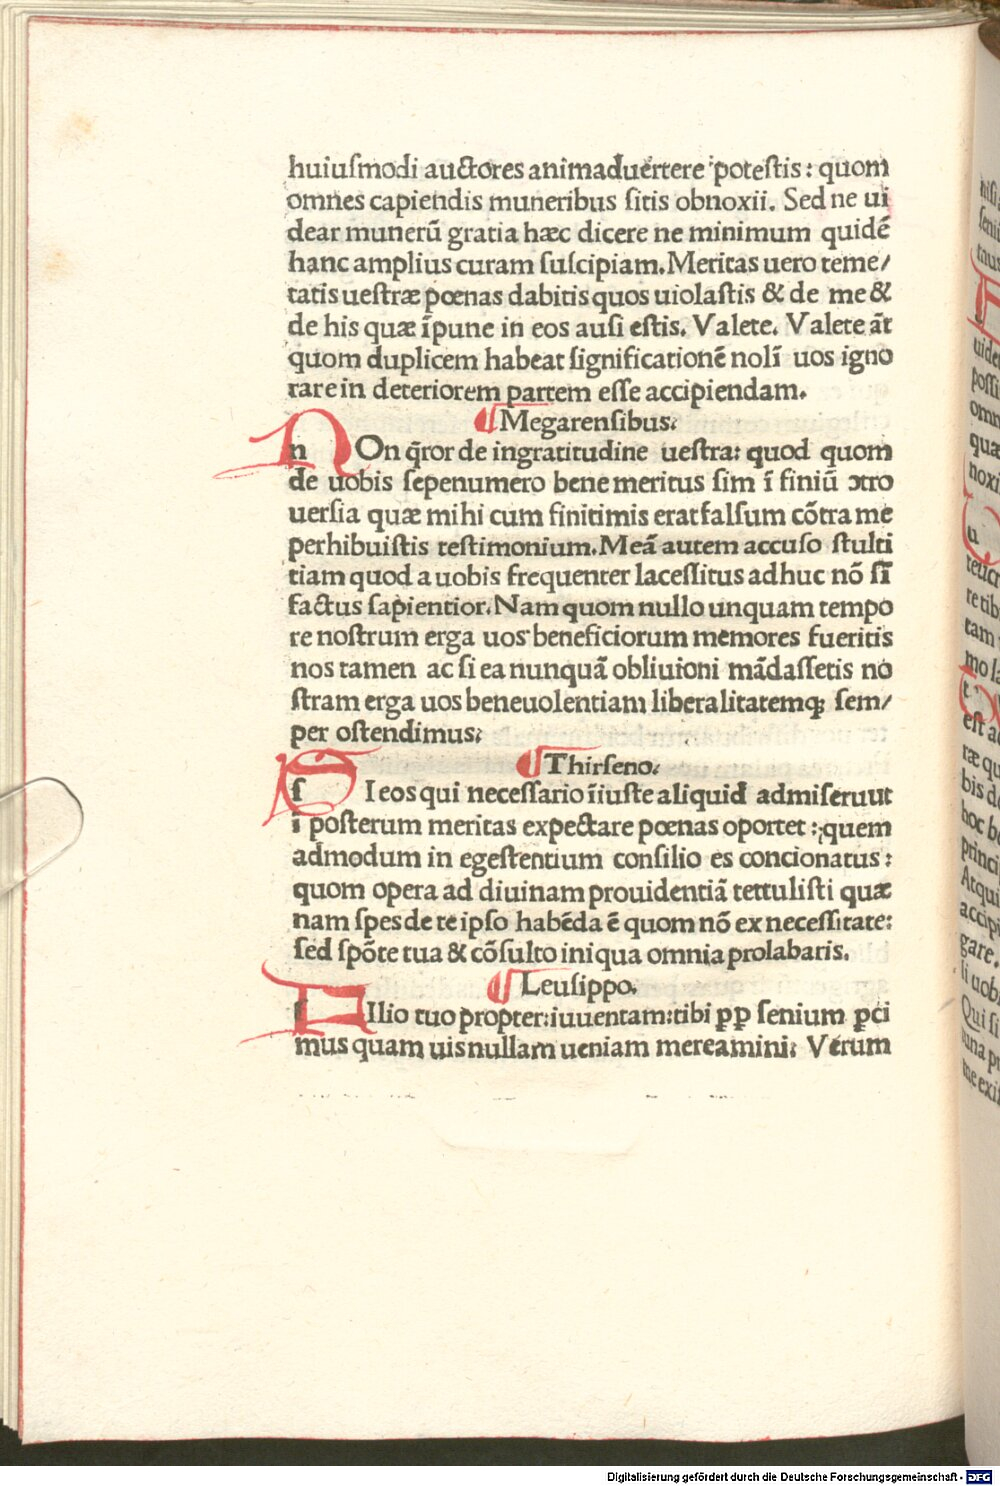 huiuſmodi auctores animaduertere potestis: quom
omnes capiendis muneribus ſitis obnoxii. Sed ne ui
dear munerū gratia hæc dicere ne minimum quidē
hanc amplius curam ſuſcipiam. Meritas uero teme/
tatis ueſtræ pœnas dabitis quos uiolaſtis & de me &
de his quæ īpune in eos auſi eſtis. Valete. Valete āt
quom duplicem habeat ſignificationē nolī uos igno
rare in deteriorem partem eſſe accipiendam.
¶ Megarenſibus:
nOn q̄ror de ingratitudine ueſtra: quod quom
de uobis ſepenumero bene meritus ſim ī finiū ↄtro
uerſia quæ mihi cum finitimis erat falſum cōtra me
perhibuiſtis teſtimonium. Meā autem accuſo ſtulti
tiam quod a uobis frequenter laceſſitus adhuc nō ſī
factus ſapientior. Nam quom nullo unquam tempo
re noſtrum erga uos beneficiorum memores fueritis
nos tamen ac ſi ea nunquā obliuioni mādaſſetis no
ſtram erga uos beneuolentiam liberalitatemq; ſem/
per oſtendimus:
¶ Thirſeno.
ſIeos qui neceſſario īiuſte aliquid admiſeruut
ī poſterum meritas expectare pœnas oportet: quem
admodum in egeſtentium conſilio es concionatus:
quom opera ad diuinam prouidentiā tettuliſti quæ
nam ſpes de te ipſo habēda ē quom nō ex neceſſitate:
ſed ſpōte tua & cōſulto iniqua omnia prolabaris.
¶ Leuſippo.
fIlio tuo propter: iuuentam: tibi ꝓp ſenium ꝑci
mus quam uis nullam ueniam mereamini: Verum
Digitalisierung gefördert durch die Deutsche Forschungsgemeinschaft - DFG